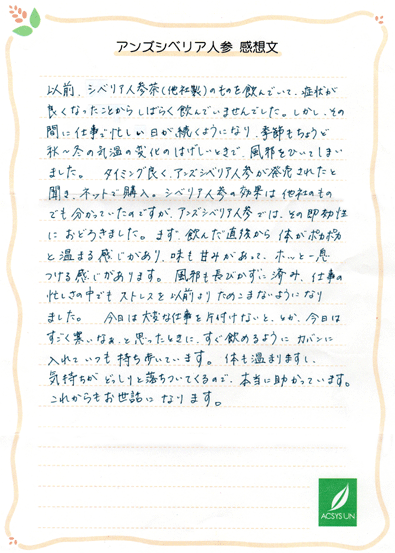 アンズシベリア人参 感想文
以前、シベリア人参茶(他社製)のものを飲んでいて、症状が
良くなったことからしばらく飲んでいませんでした。しかし、その
間に仕事で忙しい日が続くようになり、季節もちょうど
秋〜冬の気温の変化のはげしいときで、風邪をひいてしまい
ました。 タイミング良く、アンズシベリア人参が発売されたと
聞き、ネットで購入。シベリア人参の効果は他社のもの
でも分かっていたのですが、アンズシベリア人参では、その即効性
におどろきました。まず、飲んだ直後から体がポカポカ
と温まる感じがあり、味も甘みがあって、ホッと一息
つける感じがあります。風邪も長びかずに済み、仕事の
忙しさの中でもストレスを以前よりためこまないようになり
ました。 今日は大変な仕事を片付けないと、とか、今日は
すごく寒いなぁ、と思ったときに、すぐ飲めるようにカバンに
入れていつも持ち歩いています。体も温まりますし、
気持ちがどっしりと落ちついてくるので、本当に助かっています。
これからもお世話になります。
ACSYSUN